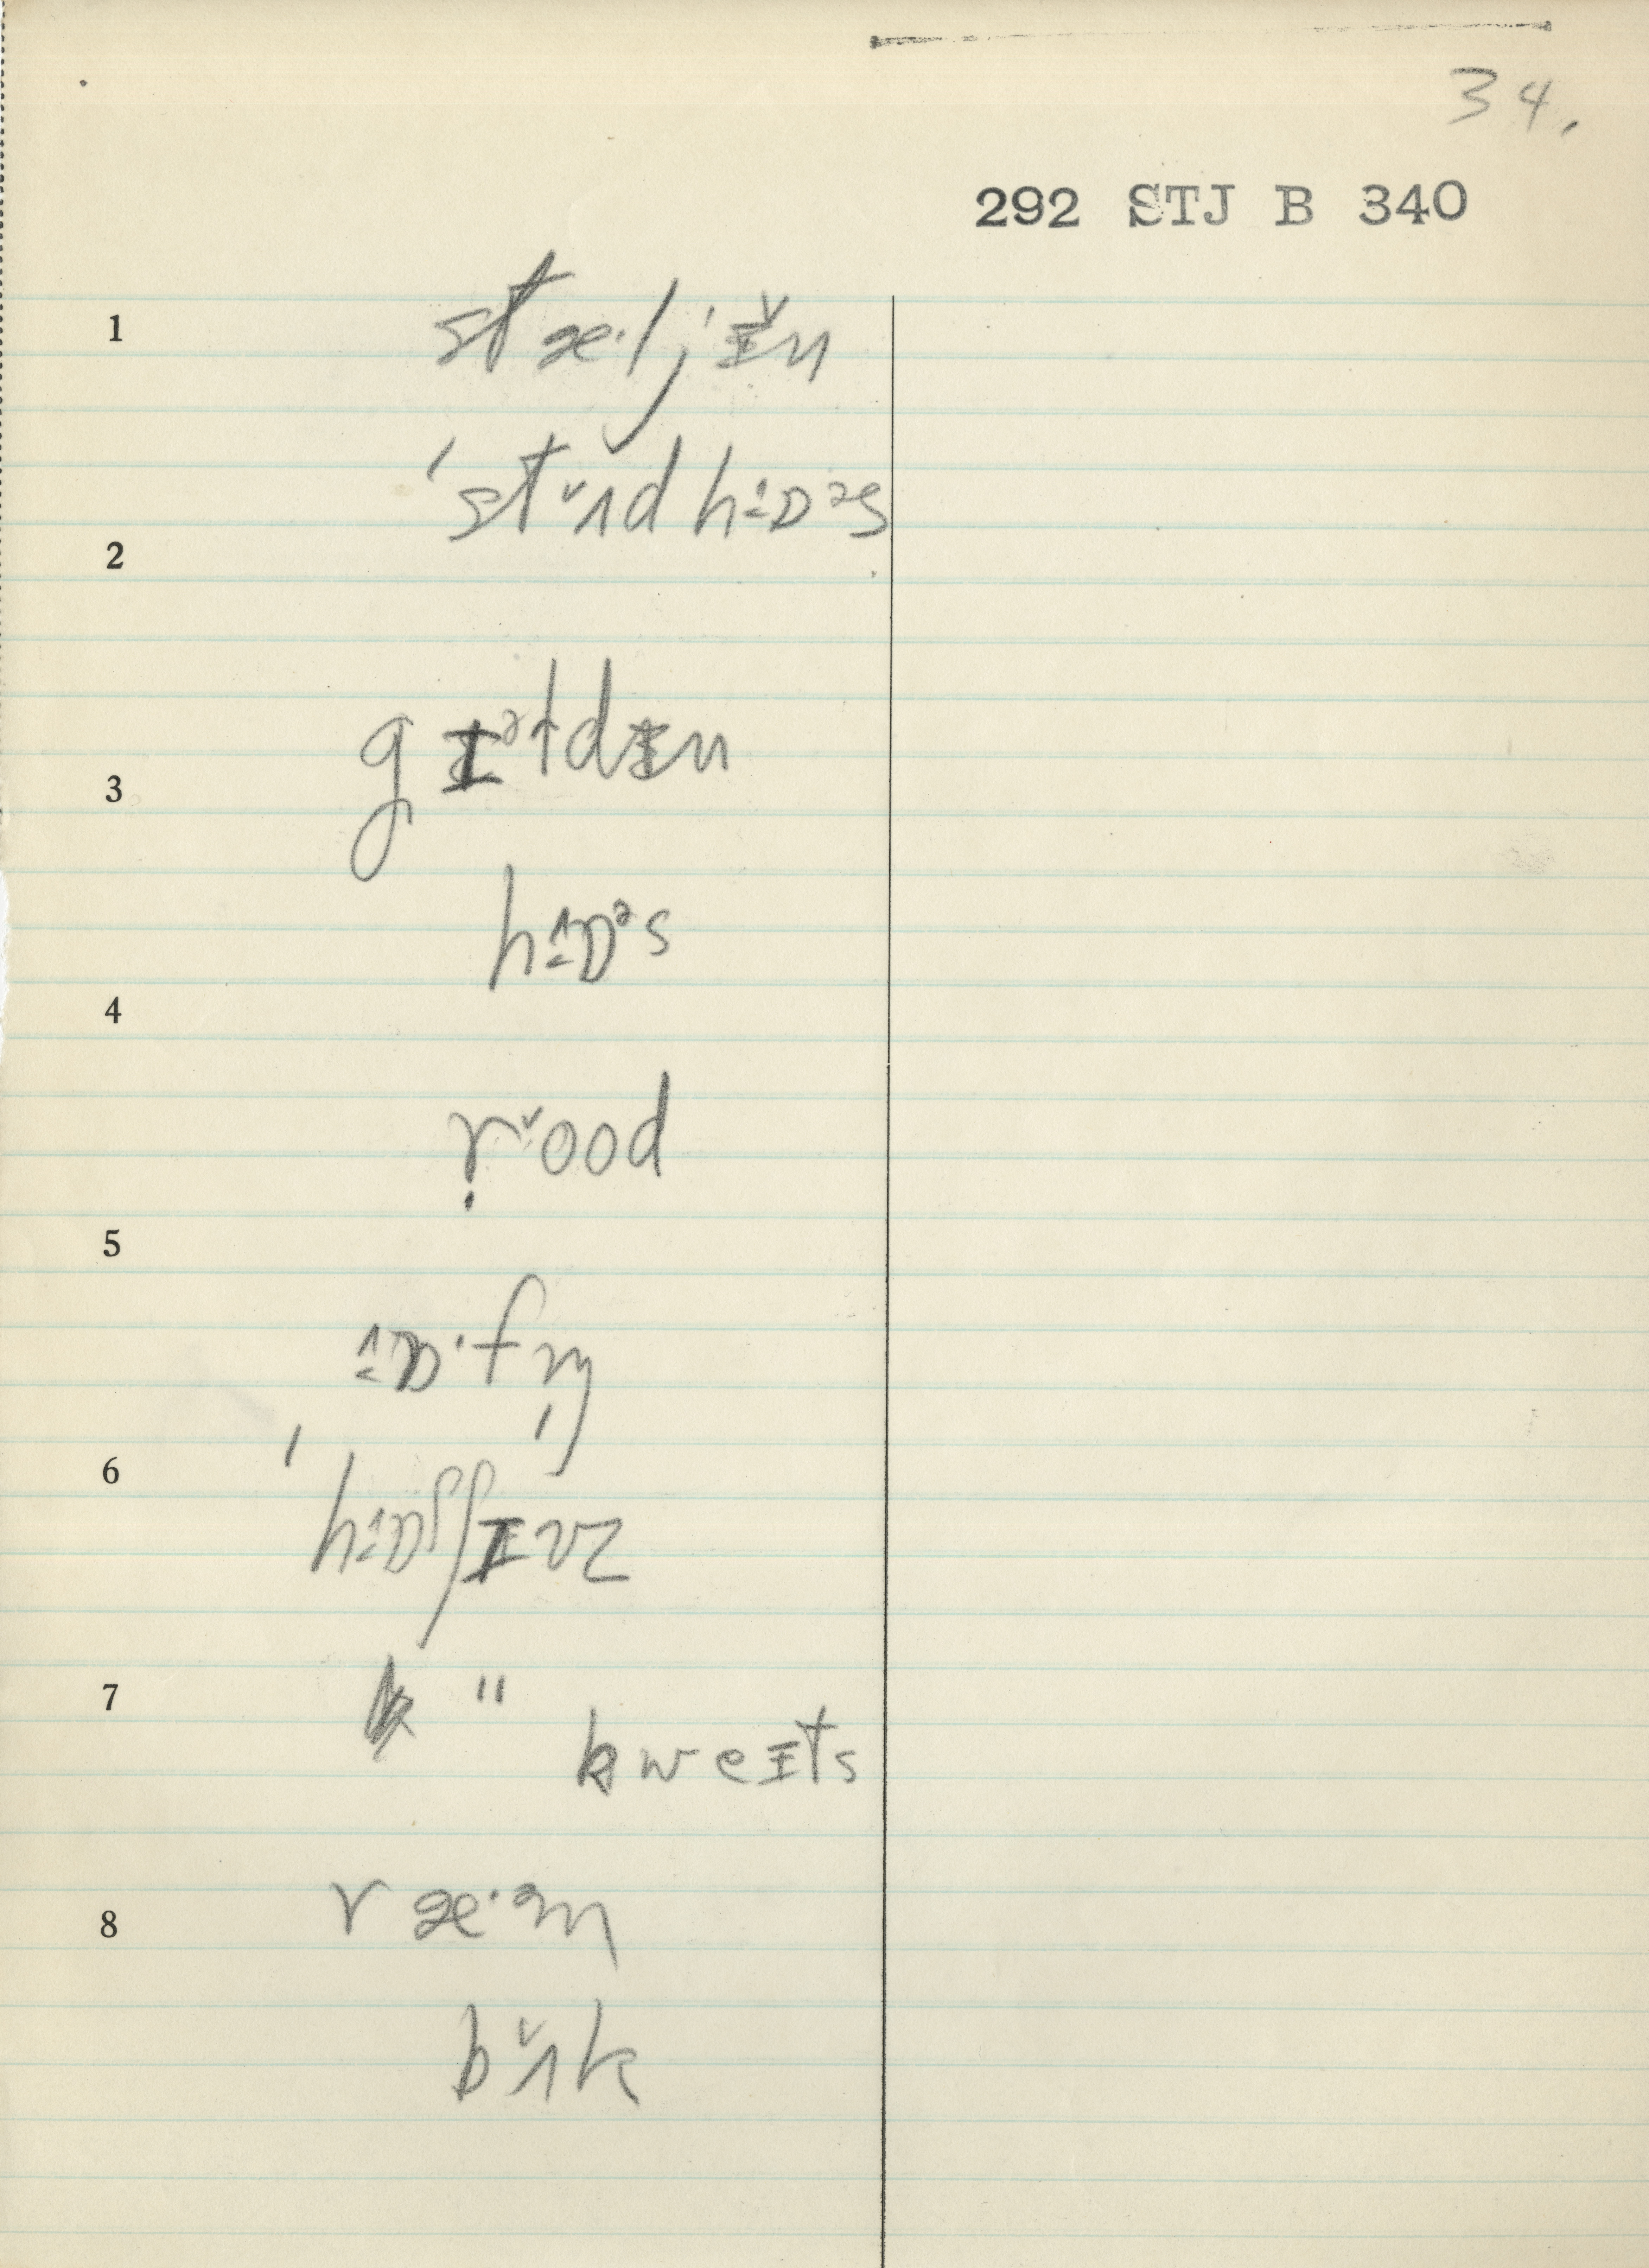 34.
292 STJ B 340
1 stæ·ljɪ̵̌n
ˈstʌ̌dhɒ̂ᵊs
2
3 gɪᵊtdɪ̵n
hɒ̂ᵊs
4
ṛ̌ood
5
ɒ̂·fn̩
6 ˈhɒ̂ʃʃɪvz
7 " kweɪts
8 ræ·ᵊm
bʌ̌k